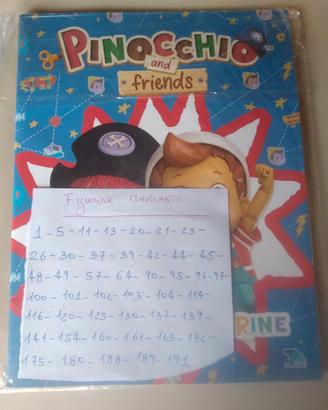 PINOCCHIO
and
friends
Figurine MANCANTI
1-5-11-13-20-21-23-
26-30-37-39-42-44-45-
48-49-57-64-90-95-96-97-
100-101-102-103-104-114-
116-120-125-130-137-139-
141-154-160-161-165-172-
175-180-188-189-191
RINE